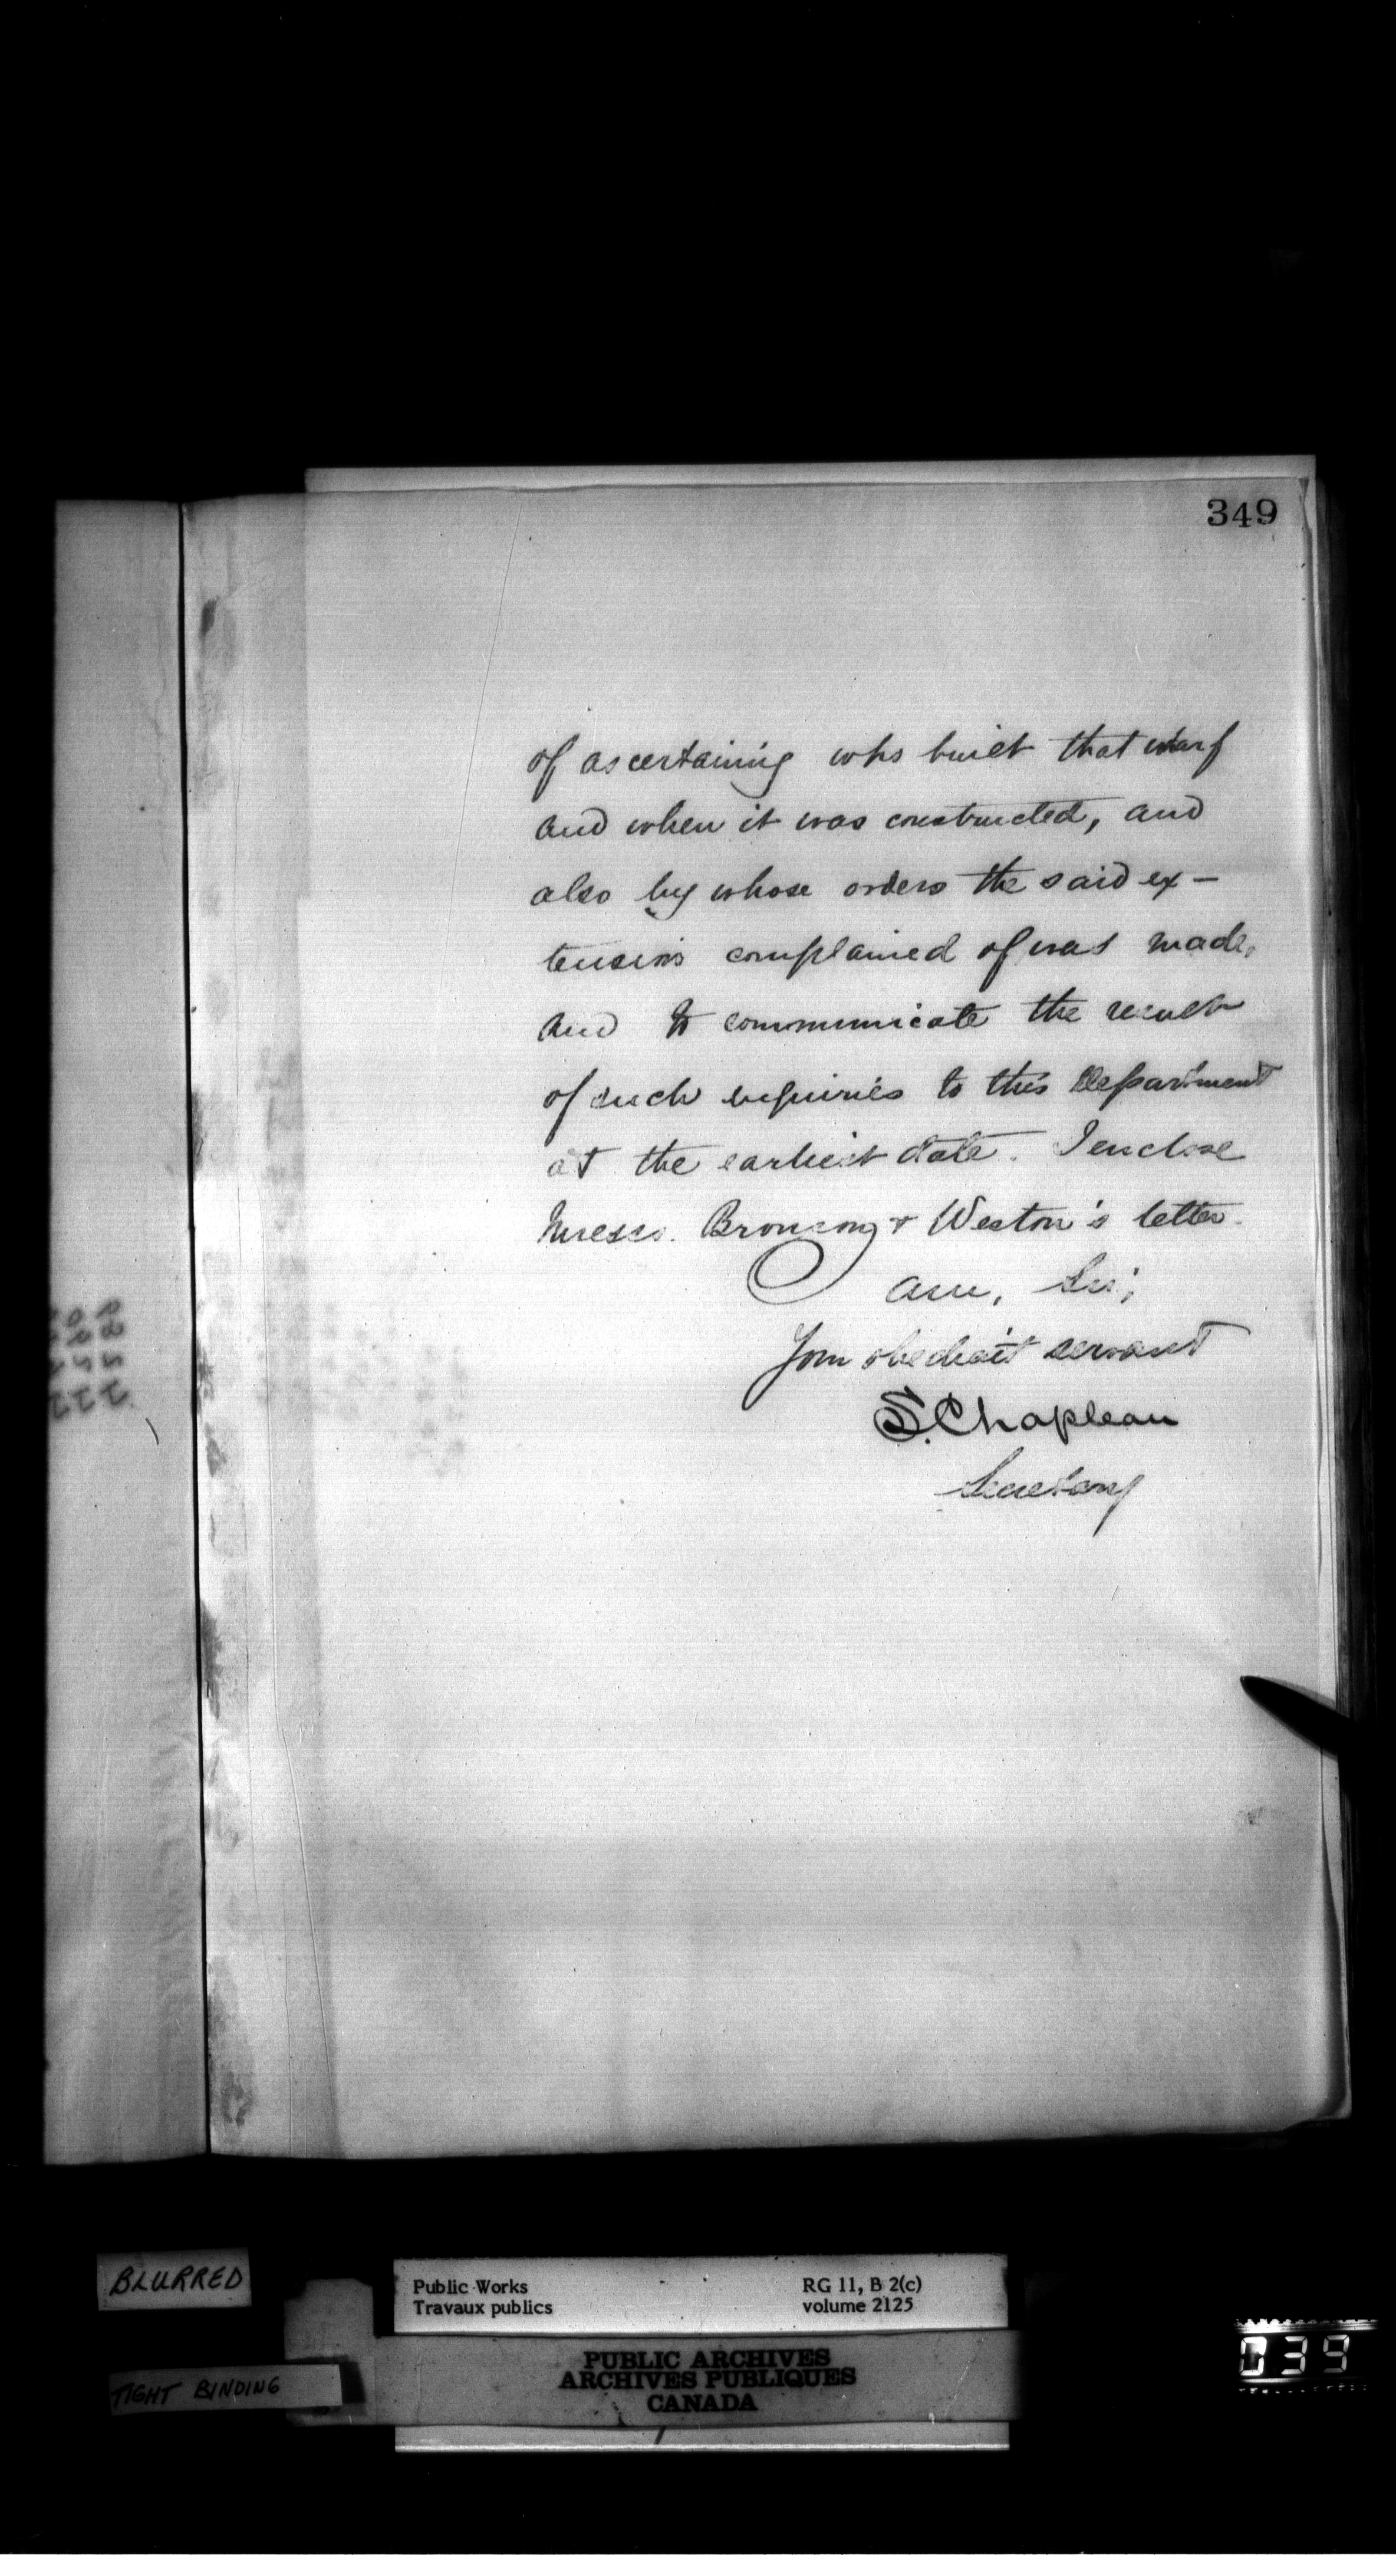 349
of ascertaining who built that wharf
and when it was constructed, and
also by whose orders the said ex-
tension complained of was made,
and to communicate the result
of such inquiries to this Department
at the earliest date. I enclose
Messrs. Bronsons & Weston's letter.
I am, Sir,
Your obedient servant
S. Chapleau
Secretary
BLURRED
TIGHT BINDING
Public Works
Travaux publics
RG 11, B 2(c)
volume 2125
PUBLIC ARCHIVES
ARCHIVES PUBLIQUES
CANADA
039